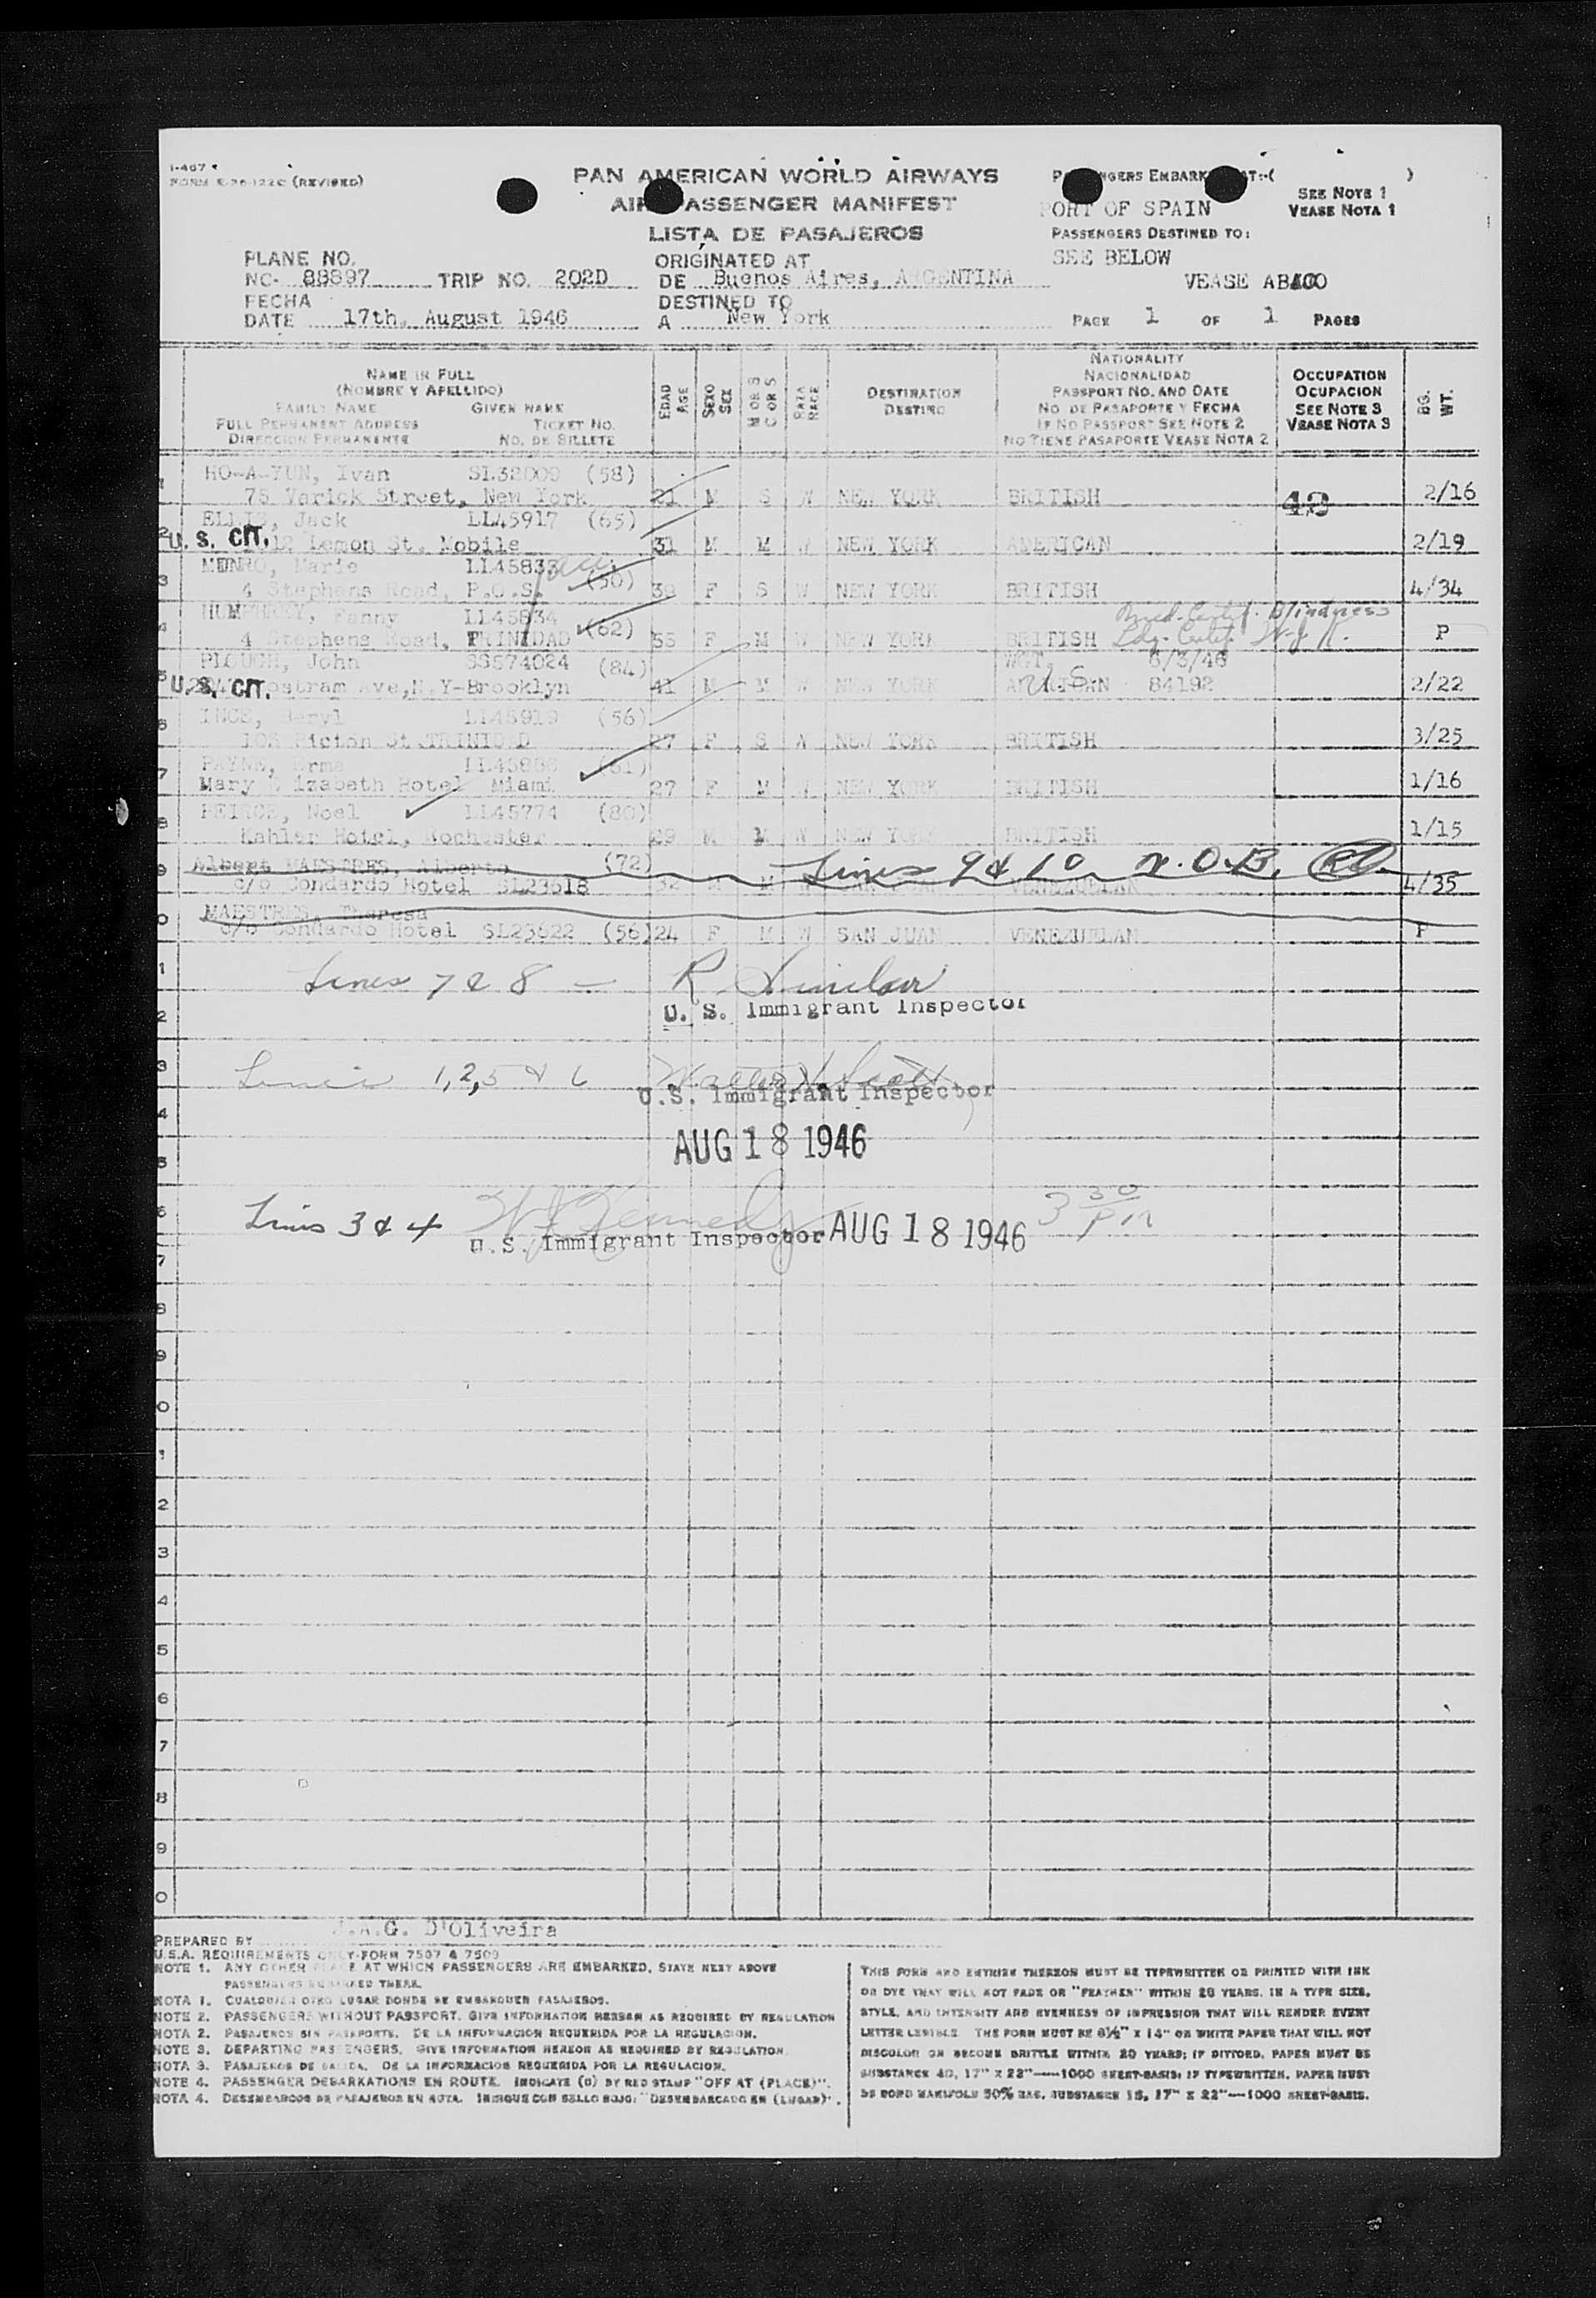 I-467
FORM (REVISED)
PAN AMERICAN WORLD AIRWAYS
AIR PASSENGER MANIFEST
LISTA DE PASAJEROS
PASSENGERS EMBARK AT:-( )
SEE NOTE 1
VEASE NOTA 1
PORT OF SPAIN
PASSENGERS DESTINED TO:
SEE BELOW
VEASE
PLANE NO.
NC- 88897 TRIP NO. 202D
ORIGINATED AT
DE Buenos Aires, ARGENTINA
FECHA
DATE 17th. August 1946
DESTINED TO
A New York
PAGE 1 OF 1 PAGES
NAME IN FULL
(NOMBRE Y APELLIDO)
FAMILY NAME GIVEN NAME
FULL PERMANENT ADDRESS TICKET NO.
DIRECCION PERMANENTE NO. DE BILLETE
EDAD AGE
SEXO SEX
M OR S
C OR S
RAZA RACE
DESTINATION
DESTINO
NATIONALITY
NACIONALIDAD
PASSPORT NO. AND DATE
NO. DE PASAPORTE Y FECHA
IF NO PASSPORT SEE NOTE 2
NO TIENE PASAPORTE VEASE NOTA 2
OCCUPATION
OCUPACION
SEE NOTE 3
VEASE NOTA 3
BG. WT.
1 HO-A-YUN, Ivan SL32009 (58)
75 Varick Street, New York 21 M S W NEW YORK BRITISH 48 2/16
2 ELLIS, Jack LL45917 (65)
U. S. CIT. Lemon St. Mobile 31 M M W NEW YORK AMERICAN 2/19
3 MUNRO, Marie LL45833 (50)
4 Stephens Road, P.O.S. F S W NEW YORK BRITISH 4/34
4 HUMPHREY, Fanny LL45834 (62)
4 Stephens Road, TRINIDAD 55 F M W NEW YORK BRITISH P
Med. Certif. Blindness
5 PLOUCH, John SS574024 (84) 6/3/46
U. S. CIT. Ave, N.Y-Brooklyn 41 M M W NEW YORK 84192 2/22
6 INCE, Beryl LL45919 (56)
Picton St. TRINIDAD 27 F S W NEW YORK BRITISH 3/25
7 PAYNE, Erma (61)
Mary Elizabeth Hotel Miami 27 F M W NEW YORK BRITISH 1/16
8 PEIRCE, Noel LL45774 (80)
Kahler Hotel, Rochester 29 M M W NEW YORK BRITISH 1/15
9 Albert MAESTRES, Alberto (72) Lines 9 & 10 N.O.B.
c/o Condardo Hotel SL23618 32 M M VENEZUELAN 4/35
0 MAESTRES, Theresa
c/o Condardo Hotel SL23622 (56) 24 F M W SAN JUAN VENEZUELAN P
1 Lines 7 & 8 - R Sinclair
2 U. S. Immigrant Inspector
3 Lines 1,2,5 & 6 Walter N. Scott
U.S. Immigrant Inspector
4
AUG 18 1946
5
6 Lines 3 & 4 W J Kennedy AUG 18 1946 3 30 PM
U.S. Immigrant Inspector
7
8
9
0
1
2
3
4
5
6
7
8
9
0
PREPARED BY J.A.G. D'Oliveira
U.S.A. REQUIREMENTS ONLY-FORM 7507 & 7509
NOTE 1. ANY OTHER PLACE AT WHICH PASSENGERS ARE EMBARKED, STATE NEXT ABOVE
PASSENGERS EMBARKED THERE.
NOTA 1. CUALQUIER OTRO LUGAR DONDE SE EMBARQUEN PASAJEROS.
NOTE 2. PASSENGERS WITHOUT PASSPORT. GIVE INFORMATION HEREON AS REQUIRED BY REGULATION
NOTA 2. PASAJEROS SIN PASAPORTE. DE LA INFORMACION REQUERIDA POR LA REGULACION.
NOTE 3. DEPARTING PASSENGERS. GIVE INFORMATION HEREON AS REQUIRED BY REGULATION
NOTA 3. PASAJEROS DE SALIDA. DE LA INFORMACION REQUERIDA POR LA REGULACION.
NOTE 4. PASSENGER DEBARKATIONS EN ROUTE. INDICATE (D) BY RED STAMP "OFF AT (PLACE)".
NOTA 4. DESEMBARCOS DE PASAJEROS EN RUTA. INDIQUE CON SELLO ROJO: "DESEMBARCADO EN (LUGAR)".
THIS FORM AND ENTRIES THEREON MUST BE TYPEWRITTEN OR PRINTED WITH INK
OR DYE THAT WILL NOT FADE OR "FEATHER" WITHIN 20 YEARS, IN A TYPE SIZE,
STYLE, AND INTENSITY AND EVENNESS OF IMPRESSION THAT WILL RENDER EVERY
LETTER LEGIBLE. THE FORM MUST BE 8½" X 14" ON WHITE PAPER THAT WILL NOT
DISCOLOR OR BECOME BRITTLE WITHIN 20 YEARS; IF DITTOED, PAPER MUST BE
SUBSTANCE 40, 17" X 22"—1000 SHEET-BASIS; IF TYPEWRITTEN, PAPER MUST
BE BOND MANIFOLD 50% RAG, SUBSTANCE 18, 17" X 22"—1000 SHEET-BASIS.